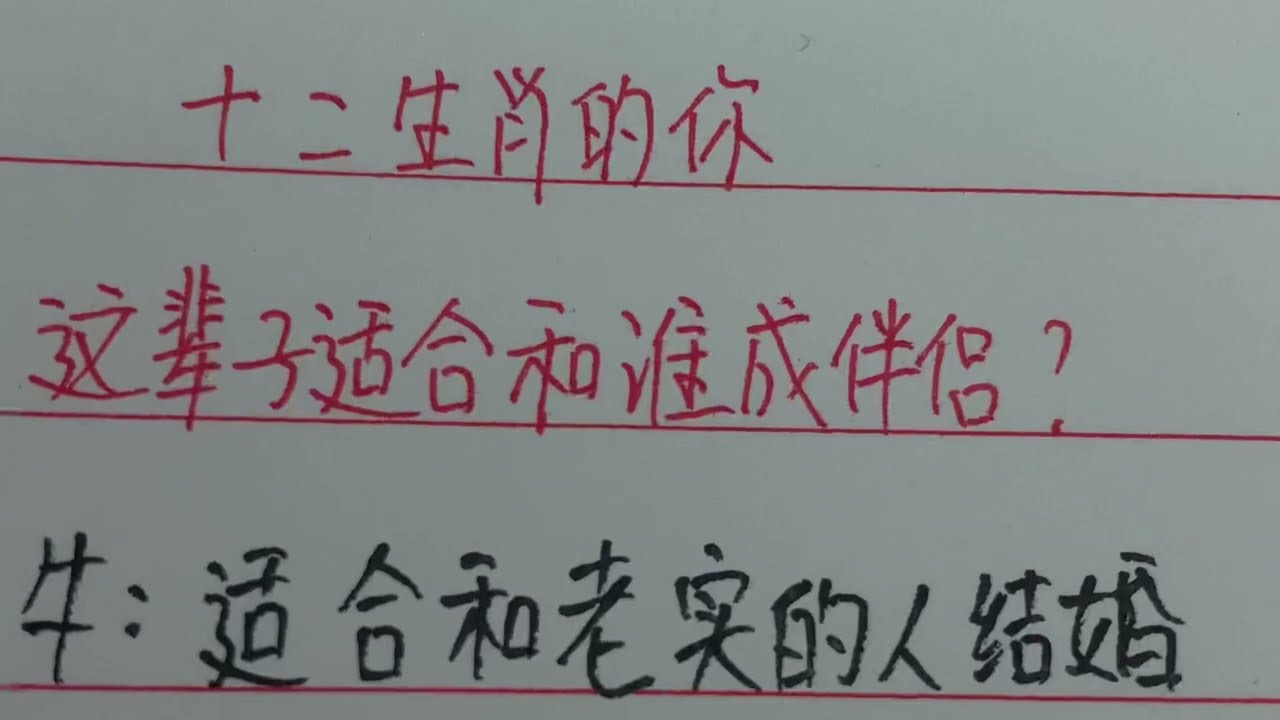 十二生肖的你
这辈子适合和谁成伴侣？
牛：适合和老实的人结婚